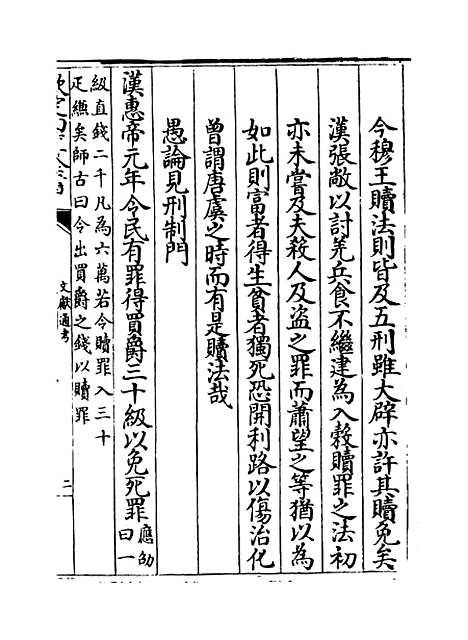 今穆王贖法則皆及五刑雖大辟亦許其贖免矣
漢張敞以討羌兵食不繼建為入穀贖罪之法初
亦未嘗及夫殺人及盜之罪而蕭望之等猶以為
如此則富者得生貧者獨死恐開利路以傷治化
曾謂唐虞之時而有是贖法哉
愚論見刑制門
漢惠帝元年令民有罪得買爵三十級以免死罪應劭
曰一
級直錢二千凡為六萬若今贖罪入三十
疋縑矣師古曰令出買爵之錢以贖罪
文獻通考
二